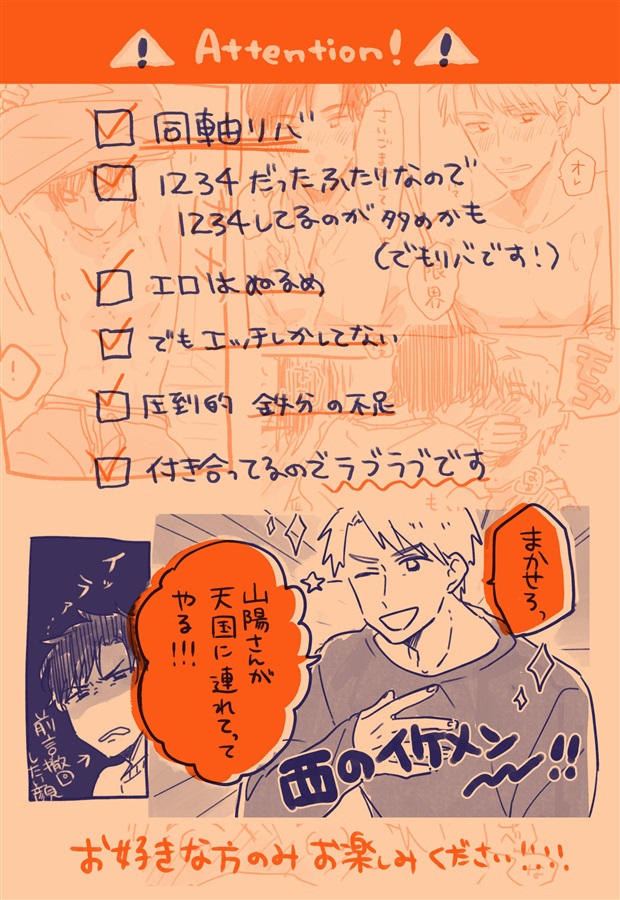 Attention!
同軸リバ
1234だったふたりなので
1234してるのが多めかも
(でもリバです!)
エロはぬるめ
でもエッチしかしてない
圧倒的 鉄分の不足
付き合ってるのでラブラブです
さいごまで
オレ
限界
!
まかせろっ
山陽さんが
天国に連れてって
やる!!!
西のイケメン
〜!!
イラァッ
前言撤回
した顔
お好きな方のみお楽しみください!!!!